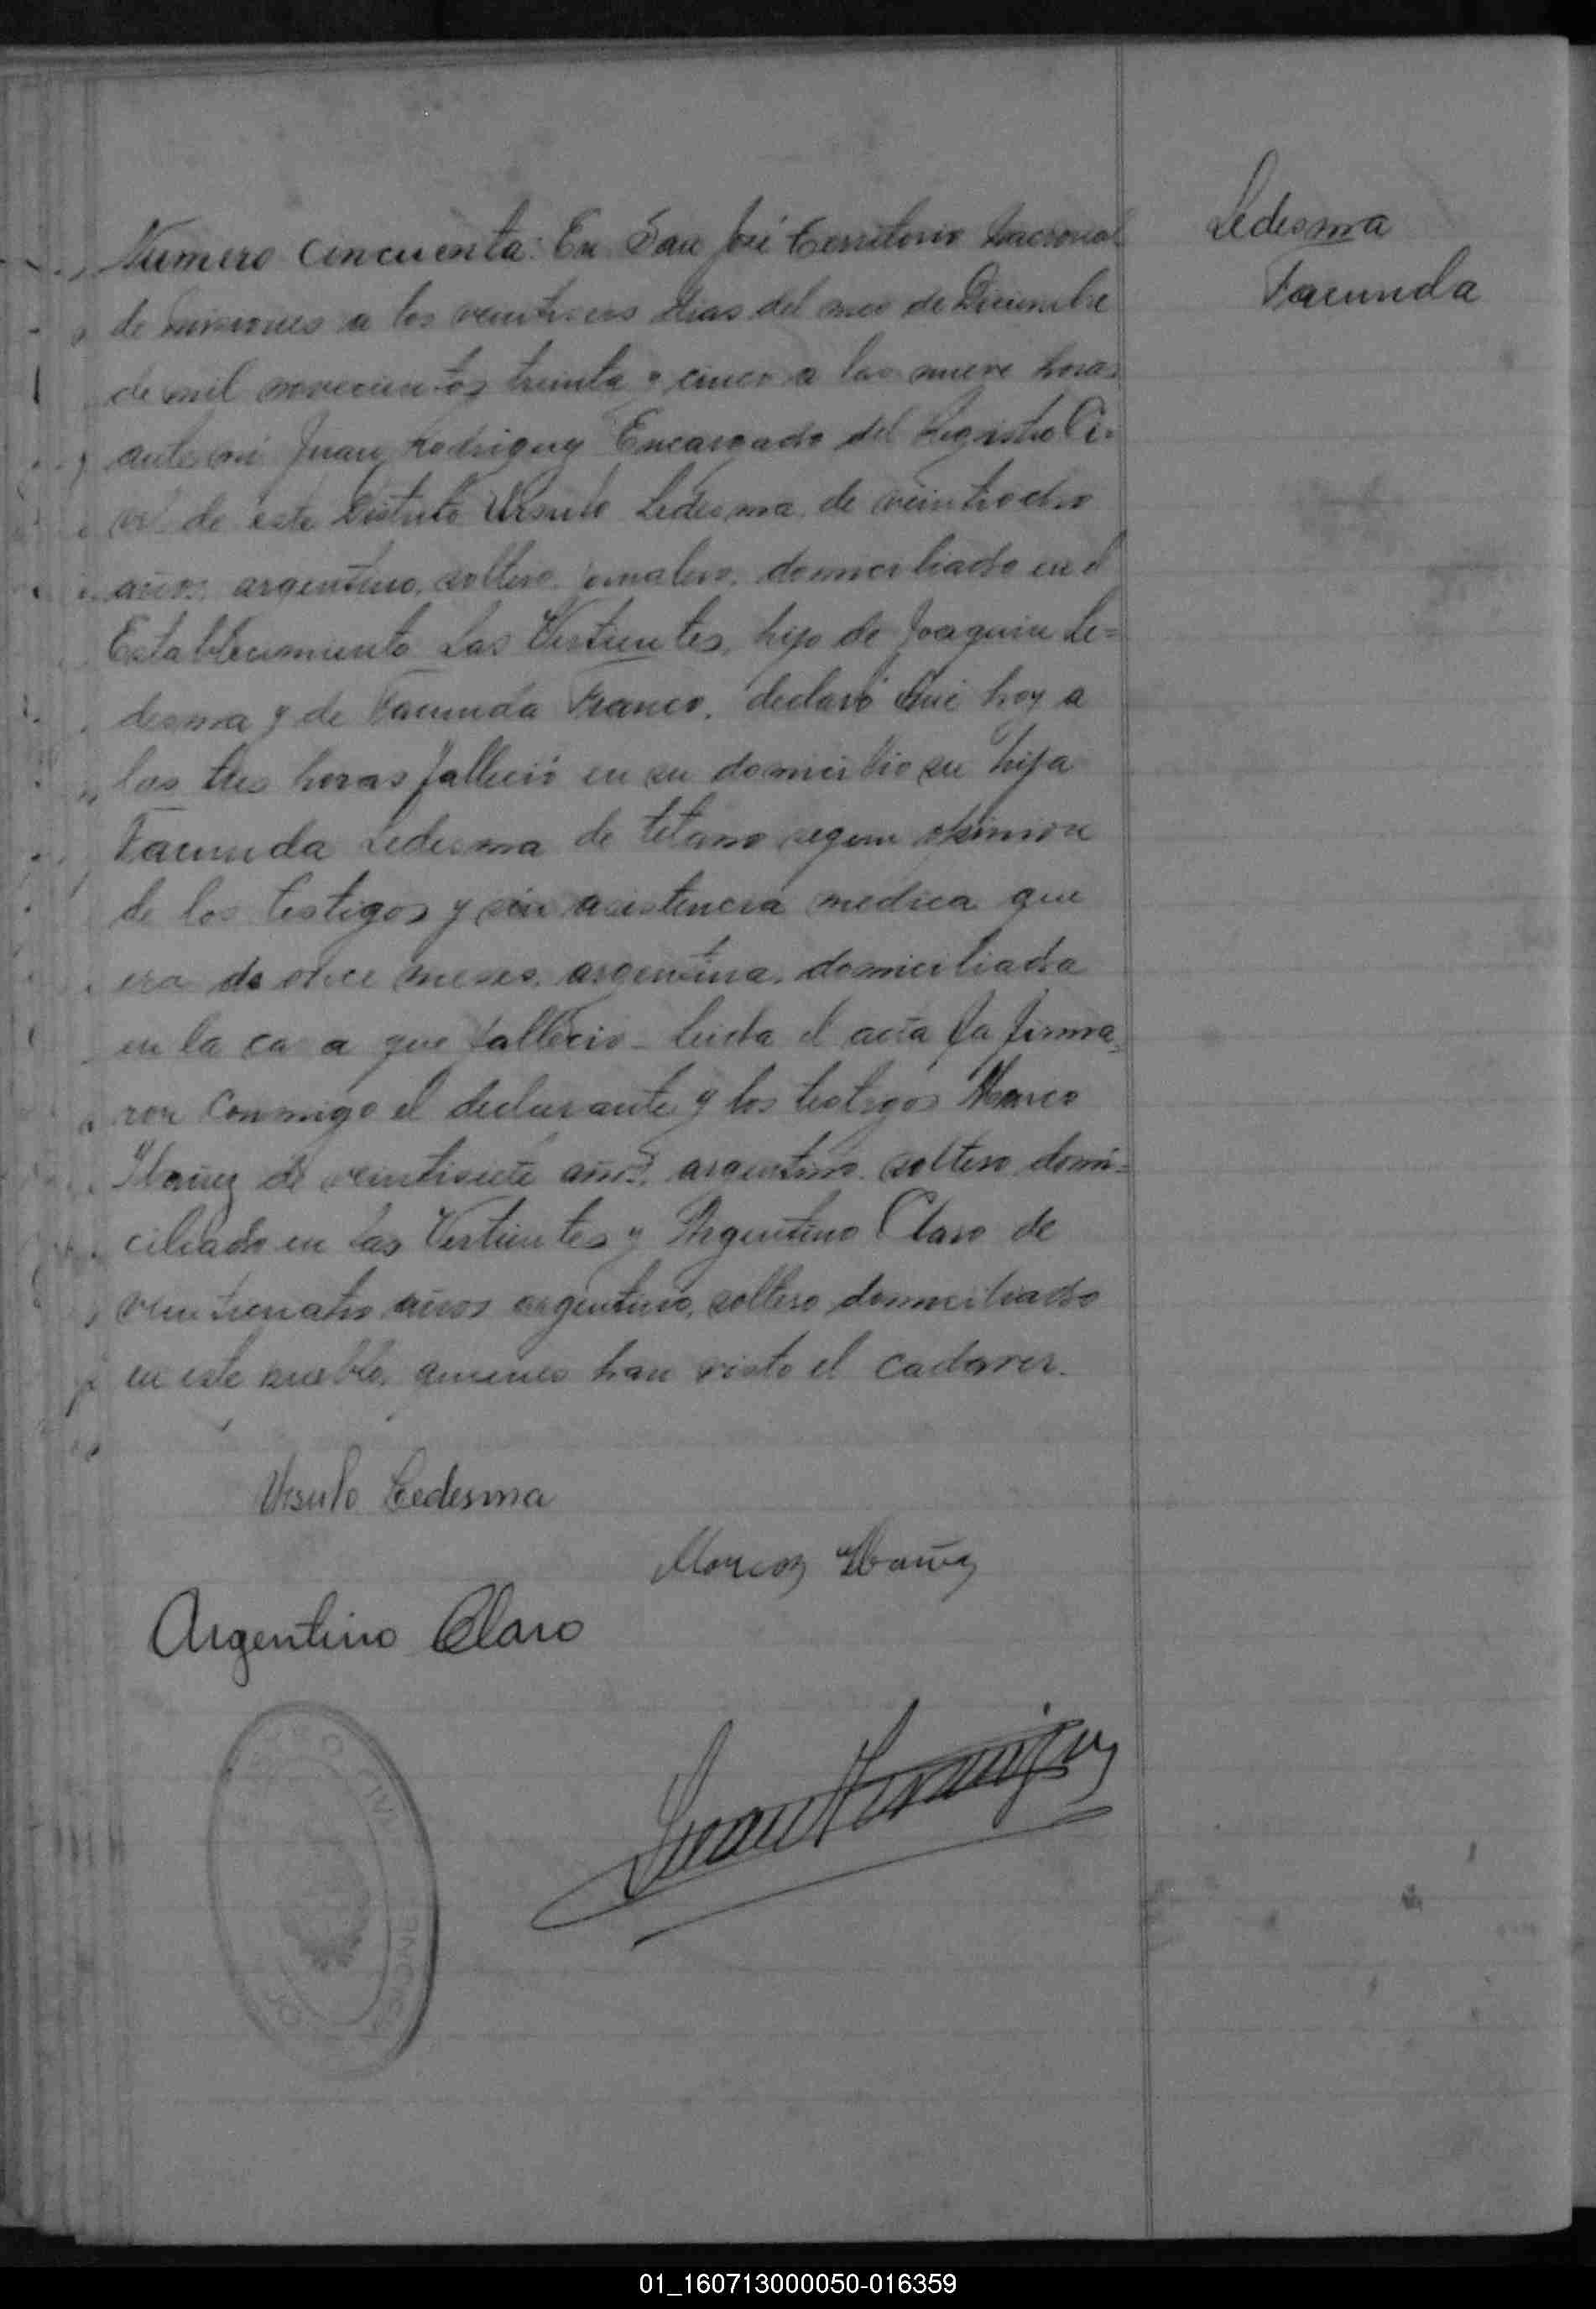 Ledesma
Facunda
Numero cincuenta: En San José Territorio Nacional
de Misiones a los veintiseis dias del mes de Diciembre
de mil novecientos treinta y cinco a las nueve horas
ante mi Juan Rodriguez Encargado del Registro Ci-
vil de este Distrito Ursulo Ledesma de veintiocho
años, argentino, soltero, jornalero, domiciliado en el
Establecimiento Las Vertientes, hijo de Joaquin Le=
desma y de Facunda Franco, declaró que hoy a
las tres horas falleció en su domicilio su hija
Facunda Ledesma de tetano segun opinion
de los testigos y sin asistencia medica que
era de once meses, argentina, domiciliada
en la casa que fallecio - leida el acta la firma=
ron conmigo el declarante y los testigos Marco
Ibañez de veintisiete años, argentino, soltero, domi=
ciliado en Las Vertientes y Argentino Claro de
veinticuatro años argentino, soltero domiciliado
en este pueblo, quienes han visto el cadaver.
Ursulo Ledesma
Marcos Ibañez
Argentino Claro
01_160713000050-016359